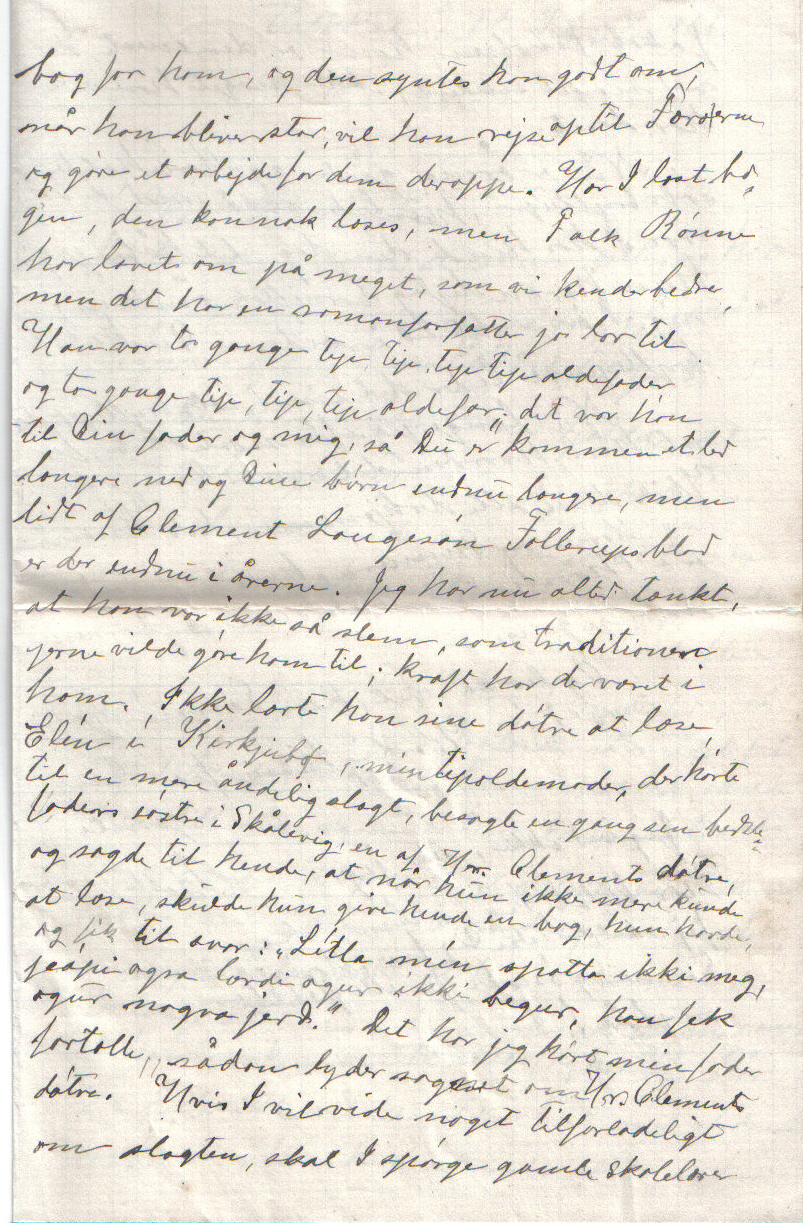 bog for ham, og den syntes han godt om,
når han bliver stor, vil han rejse op til Færøerne
og gøre et arbejde for dem deroppe. Har I læst bo-
gen, den kan nok læses, men Falk Rønne
har lavet om på meget, som vi kender bedre,
men det har en romanforfatter jo lov til
Han var to gange tip, tip, tip tip oldefader
og to gange tip, tip, tip oldefar; det var han
til Din fader og mig, så Du er kommen et led
længere ned og Dine børn endnu længere, men
lidt af Clement Laugesøn Follerups blod
er der endnu i årerne. Jeg har nu altid tænkt,
at han var ikke så slem, som traditionen
gerne vilde gøre ham til; kraft har der været i
ham. Ikke lærte han sine døtre at læse,
Elin í Kirkjubø, min tipoldemoder, der hørte
til en mere åndelig slægt, besøgte en gang sin bedste-
faders søstre i Skålevig, en af Hr. Clements døtre,
og sagde til hende, at når hun ikke mere kunde
at læse, skulde hun give hende en bog, hun havde,
og fik til svar: "Lítla mín spotta ikki meg,
pápi ogsa lærdi ogur ikki begur, han fek
ogur nogva jerd." Det har jeg hørt min fader
fortælle, sådan lyder sagnet om Hr. Clements
døtre. Hvis I vil vide noget tilforladeligt
om slægten, skal I spørge gamle skolelærer